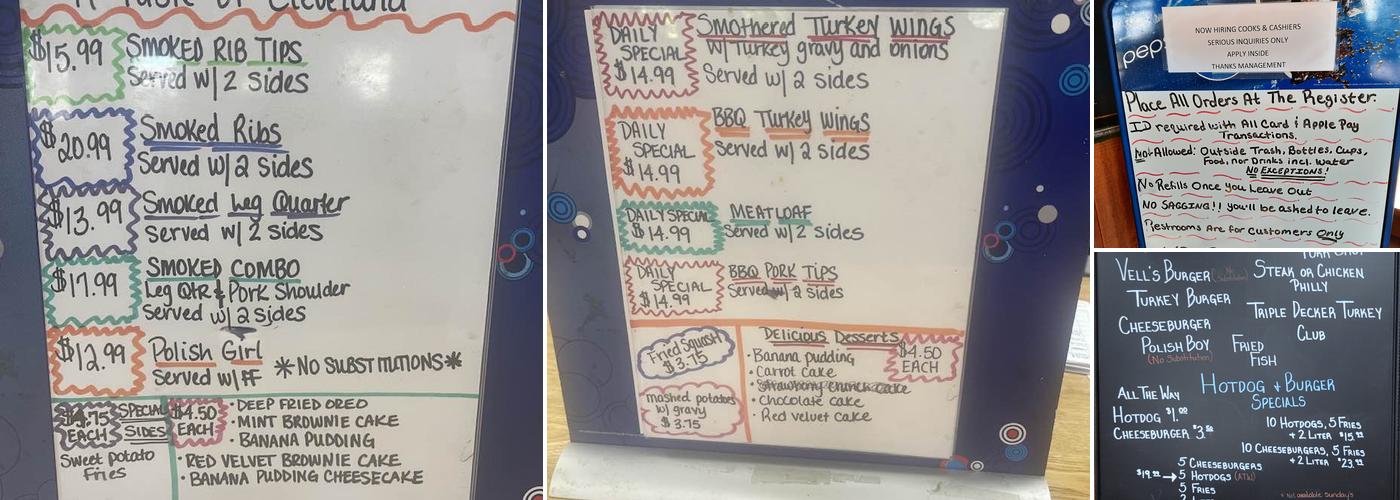 A Taste Of Cleveland
$15.99
SMOKED RIB TIPS
Served w/ 2 sides
$20.99
Smoked Ribs
Served w/ 2 sides
$13.99
Smoked Leg Quarter
Served w/ 2 sides
$17.99
SMOKED COMBO
Leg Qtr & Pork Shoulder
Served w/ 2 sides
$12.99
Polish Girl
Served w/ FF
*NO SUBSTITUTIONS*
EACH
SPECIAL
SIDES
Sweet potato
Fries
$4.50
EACH
• DEEP FRIED OREO
• MINT BROWNIE CAKE
• BANANA PUDDING
• RED VELVET BROWNIE CAKE
• BANANA PUDDING CHEESECAKE
DAILY
SPECIAL
$14.99
Smothered Turkey WINGS
w/ Turkey gravy and onions
Served w/ 2 sides
DAILY
SPECIAL
$14.99
BBQ Turkey Wings
Served w/ 2 sides
DAILY SPECIAL
$14.99
MEATLOAF
Served w/ 2 sides
DAILY
SPECIAL
$14.99
BBQ PORK TIPS
Served w/ 2 sides
Fried Squash
$3.75
mashed potatoes
w/ gravy
$3.75
Delicious Desserts
$4.50
EACH
• Banana pudding
• Carrot cake
• Strawberry crunch cake
• Chocolate cake
• Red velvet cake
pepsi
NOW HIRING COOKS & CASHIERS
SERIOUS INQUIRIES ONLY
APPLY INSIDE
THANKS MANAGEMENT
Place All Orders At The Register.
ID required with All Card & Apple Pay
Transactions.
Not Allowed: Outside Trash, Bottles, Cups,
Food, nor Drinks incl. Water
NO EXCEPTIONS!
No Refills Once you Leave Out
NO SAGGING!! you'll be asked to leave.
Restrooms Are for Customers Only
VELL'S BURGER
TURKEY BURGER
CHEESEBURGER
POLISH BOY
(No Substitution)
PORK CHOP
STEAK OR CHICKEN
PHILLY
TRIPLE DECKER TURKEY
CLUB
FRIED
FISH
HOTDOG + BURGER
SPECIALS
ALL THE WAY
HOTDOG $1.00
CHEESEBURGER $3.50
10 HOTDOGS, 5 FRIES
+ 2 LITER $15.99
10 CHEESEBURGERS, 5 FRIES
+ 2 LITER $23.99
5 CHEESEBURGERS
$19.99 → 5 HOTDOGS (ATW)
5 FRIES
* Not available Sunday's